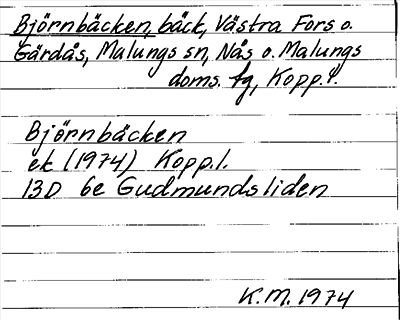 Björnbäcken, bäck, Västra Fors o.
Gärdås, Malungs sn, Nås o. Malungs
doms. tg, Kopp. l.
Björnbäcken
ek (1974) Kopp.l.
13D 6e Gudmundsliden
K.M. 1974